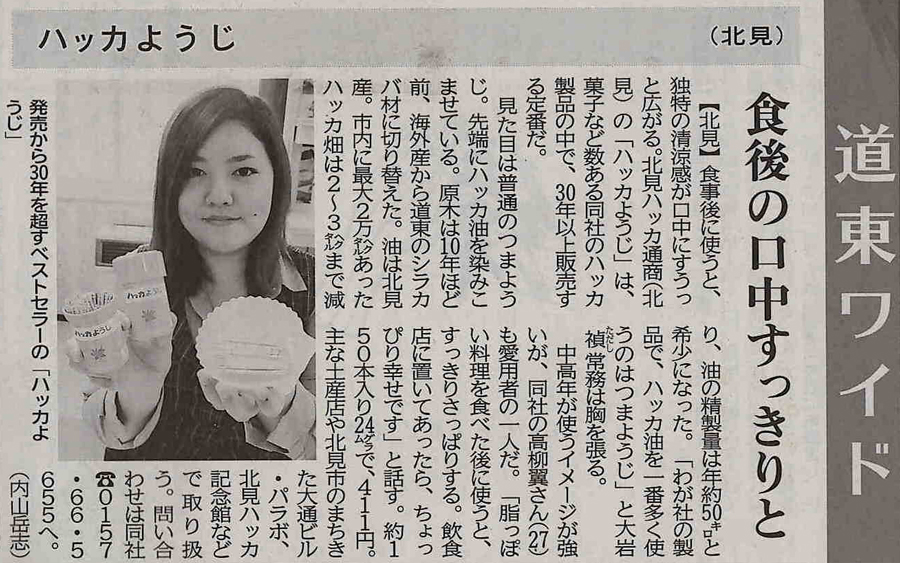 道東ワイド
ハッカようじ
（北見）
食後の口中すっきりと
【北見】食事後に使うと、
独特の清涼感が口中にすうっ
と広がる。北見ハッカ通商（北
見）の「ハッカようじ」は、
菓子など数ある同社のハッカ
製品の中で、30年以上販売す
る定番だ。
見た目は普通のつまよう
じ。先端にハッカ油を染みこ
ませている。原木は10年ほど
前、海外産から道東のシラカ
バ材に切り替えた。油は北見
産。市内に最大2万㌶あった
ハッカ畑は2～3㌶まで減
り、油の精製量は年約50㌔と
希少になった。「わが社の製
品で、ハッカ油を一番多く使
うのはつまようじ」と大岩
禎（ただし）常務は胸を張る。
中高年が使うイメージが強
いが、同社の高柳翼さん（27）
も愛用者の一人だ。「脂っぽ
い料理を食べた後に使うと、
すっきりさっぱりする。飲食
店に置いてあったら、ちょっ
ぴり幸せです」と話す。約1
50本入り24㌘で、411円。
主な土産店や北見市のまちき
た大通ビル
・パラボ、
北見ハッカ
記念館など
で取り扱
う。問い合
わせは同社
☎0157
・66・5
655へ。
（内山岳志）
発売から30年を超すベストセラーの「ハッカよ
うじ」
ハッカようじ
ハッカようじ